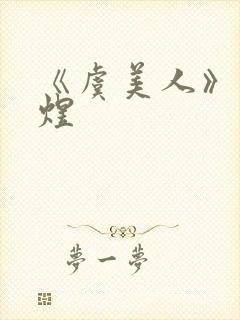 《虞美人》
煌
夢一夢